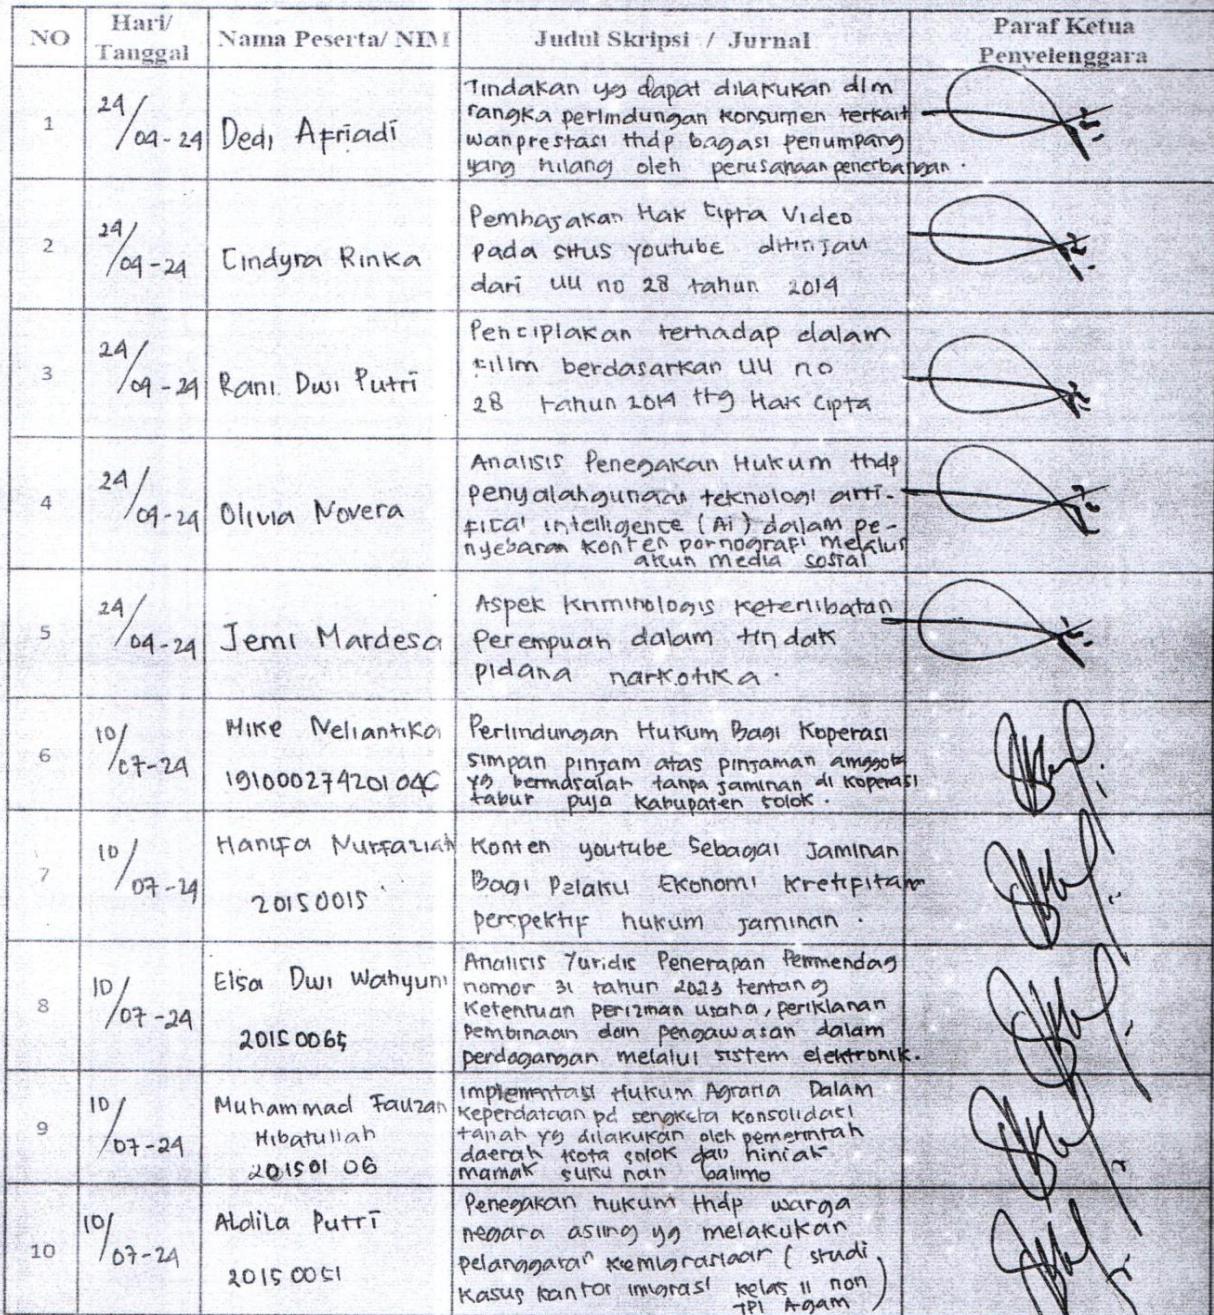 NO Hari/ Tanggal Nama Peserta/ NIM Judul Skripsi / Jurnal Paraf Ketua Penyelenggara
1 24/04-24 Dedi Apriadi Tindakan yg dapat dilakukan dlm
rangka perlindungan konsumen terkait
wanprestasi thdp bagasi penumpang
yang hilang oleh perusahaan penerbangan.
2 24/04-24 Cindyra Rinka Pembajakan Hak Cipta Video
pada situs youtube ditinjau
dari UU no 28 tahun 2014
3 24/04-24 Rani Dwi Putri Penciplakan terhadap dalam
filim berdasarkan UU no
28 tahun 2014 ttg Hak Cipta
4 24/04-24 Olivia Novera Analisis Penegakan Hukum thdp
penyalahgunaan teknologi arti-
fical intelligence (Ai) dalam pe-
nyebaran konten pornografi melalui
akun media sosial
5 24/04-24 Jemi Mardesa Aspek kriminologis keterlibatan
perempuan dalam tindak
pidana narkotika.
6 10/07-24 Mike Neliantika Perlindungan Hukum Bagi Koperasi
simpan pinjam atas pinjaman anggota
191000274201040 yg bermasalah tanpa jaminan di koperasi
tabur puja Kabupaten solok.
7 10/07-24 Hanifa Nurfaziah Konten youtube Sebagai Jaminan
20150015 Bagi Pelaku Ekonomi Kreatif
perspektif hukum jaminan.
8 10/07-24 Elsa Dwi Wahyuni Analisis Yuridis Penerapan Permendag
nomor 31 tahun 2023 tentang
ketentuan perizinan usaha, periklanan
20150065 pembinaan dan pengawasan dalam
perdagangan melalui sistem elektronik.
9 10/07-24 Muhammad Fauzan Implementasi Hukum Agraria Dalam
keperdataan pd sengketa konsolidasi
Hibatullah tanah yg dilakukan oleh pemerintah
20150106 daerah kota solok dan niniak
mamak suku nan balimo
10 10/07-24 Aldila Putri Penegakan hukum thdp warga
negara asing yg melakukan
20150051 pelanggaran keimigrasiaan (studi
kasus kantor imigrasi kelas II non
TPI Agam)